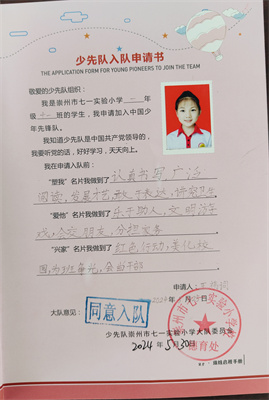 少先队入队申请书
THE APPLICATION FORM FOR YOUNG PIONEERS TO JOIN THE TEAM
敬爱的少先队组织：
我是崇州市七一实验小学 一 年
级 班的学生，我申请加入中国少
年先锋队。
我知道少先队是中国共产党领导的，
我要听党的话，好好学习，天天向上。
我在申请入队前：
“塑我”名片我做到了认真书写，广泛
阅读，发展才艺，敢于表达，讲究卫生
“爱他”名片我做到了乐于助人，文明游
戏，会交朋友，分担家务
“兴家”名片我做到了红色行动，美化校
园，为班争光，会当干部
申请人：
2024年 月 日
大队意见：
同意入队
少先队崇州市七一实验小学大队委员会
2024年5月30日
崇州市七一实验小学
德育处